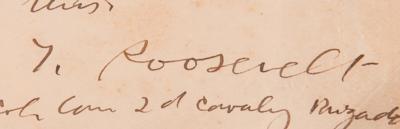 T. Roosevelt
Col. Com 2d Cavalry Brigade